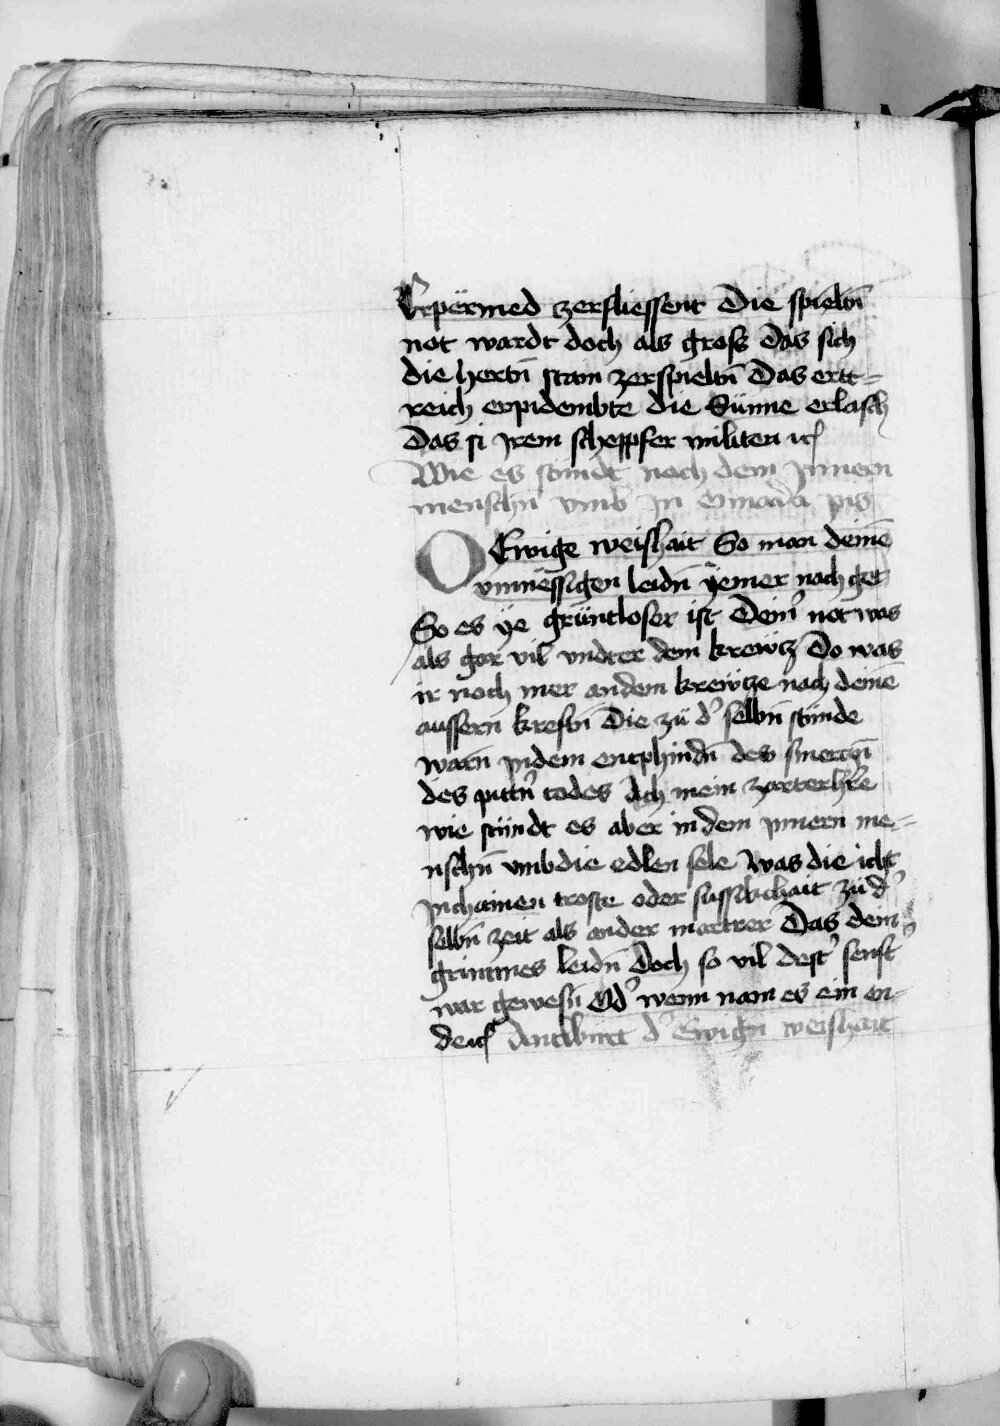 Erpermed zerfliessent Die spieltn̄
not wardt doch als gross Das sich
die hertn̄ stain zerspieltn̄ Das ertt=
reich erpidembte die Sünne erlasch
Das si jrem scheppfer militen
Wie es stündt nach dem jnnern
menschn̄ vmb jn
O Ewige weishait So man deinē
vnmëssigen leidn̄ ÿemer nach get
So es ÿe grüntloser ist Dein' not was
als gar vil vndter dem krewtz Do was
ir noch mer andem krewtze nach deinē
aussern kreftn̄ Die zü d' selbn̄ stünde
warn̄ jndem entphindn̄ des smertzn̄
des pittn̄ todes Ach mein zarter hr̄re
wie stündt es aber in dem jnnern me=
nschn̄ vmb die edlen sele Was die icht
jnchainen troste oder sussikchait zü d'
selbn̄ zeit als ander martrer Das dein
grimmes leidn̄ Doch so vil dest' senft'
war gewesn̄ Od' wenn nam es ein en=
de Antburt d' Ewign̄ weishait